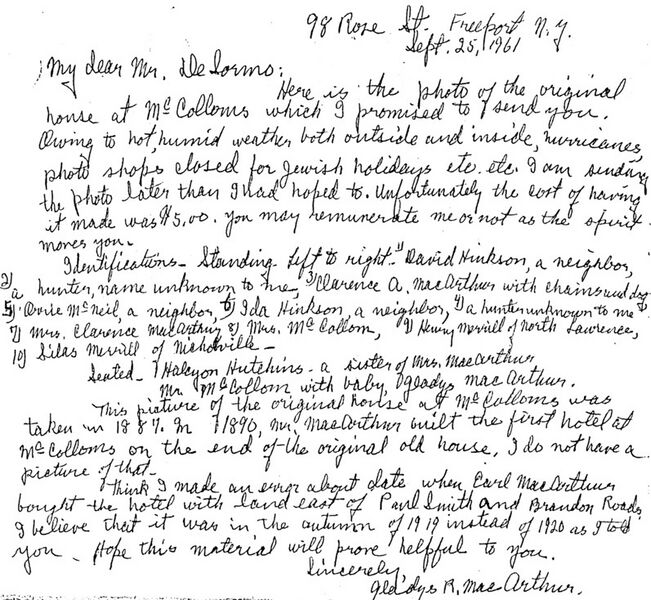 98 Rose St. Freeport N.y.
Sept. 25, 1961
My dear Mr. De Sormo:
Here is the photo of the original
house at McColloms which I promised to send you.
Owing to hot, humid weather both outside and inside, hurricanes,
photo shops closed for Jewish holidays etc. etc. I am sending
the photo later than I had hoped to. Unfortunately the cost of having
it made was $5.00. you may remunerate me or not as the spirit
moves you.
Identifications - Standing Left to right - 1) David Hinkson, a neighbor,
2) a hunter, name unknown to me, 3) Clarence A. MacArthur with chains and dog
5) Orrie McNeil, a neighbor, 6) Ida Hinkson, a neighbor, 4) a hunter unknown to me
7) Mrs. Clarence MacArthur 8) Mrs. McCollom, 9) Henry Merrill of North Lawrence,
10) Silas Merrill of Nicholville -
Seated - 1 Halcyon Hutchins - a sister of Mrs. MacArthur
Mr. McCollom with baby, Gladys MacArthur.
This picture of the original house at McColloms was
taken in 1887. In 1890, Mr. MacArthur built the first hotel at
McColloms on the end of the original old house. I do not have a
picture of that -
I think I made an error about date when Earl MacArthur
bought the hotel with land east of Paul Smith and Brandon Roads
I believe that it was in the autumn of 1919 instead of 1920 as I told
you. Hope this material will prove helpful to you.
Sincerely
Gladys R. MacArthur.